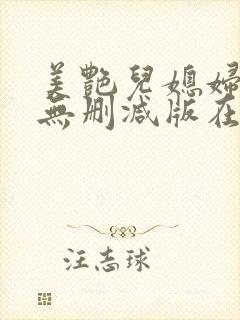 美艷兒媳婦
無刪減版在
汪志球